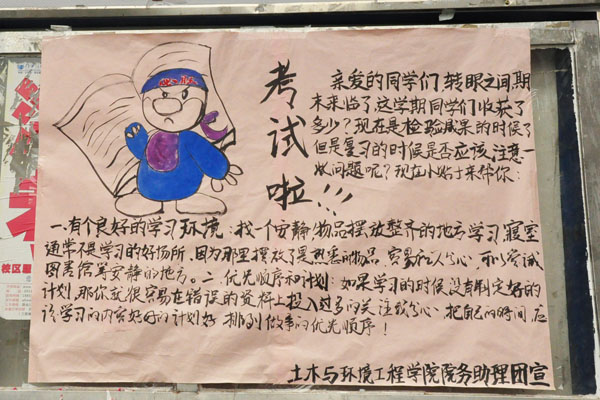 考试啦!!!
亲爱的同学们,转眼之间期
末来临了,这学期同学们收获了
多少?现在是检验成果的时候了
但是复习的时候是否应该注意一
些问题呢?现在小贴士来帮你:
一.有个良好的学习环境:找一个安静,物品摆放整齐的地方学习,寝室
通常不是学习的好场所,因为那里摆放了是熟悉的物品,容易让人分心,可以尝试
图书馆等安静的地方。二.优先顺序和计划:如果学习的时候没有制定好的
计划,那你就很容易在错误的资料上投入过多的关注致分心,把自己的时间,应
该学习的内容好好的计划好,排列做事的优先顺序!
土木与环境工程学院院务助理团宣
校区